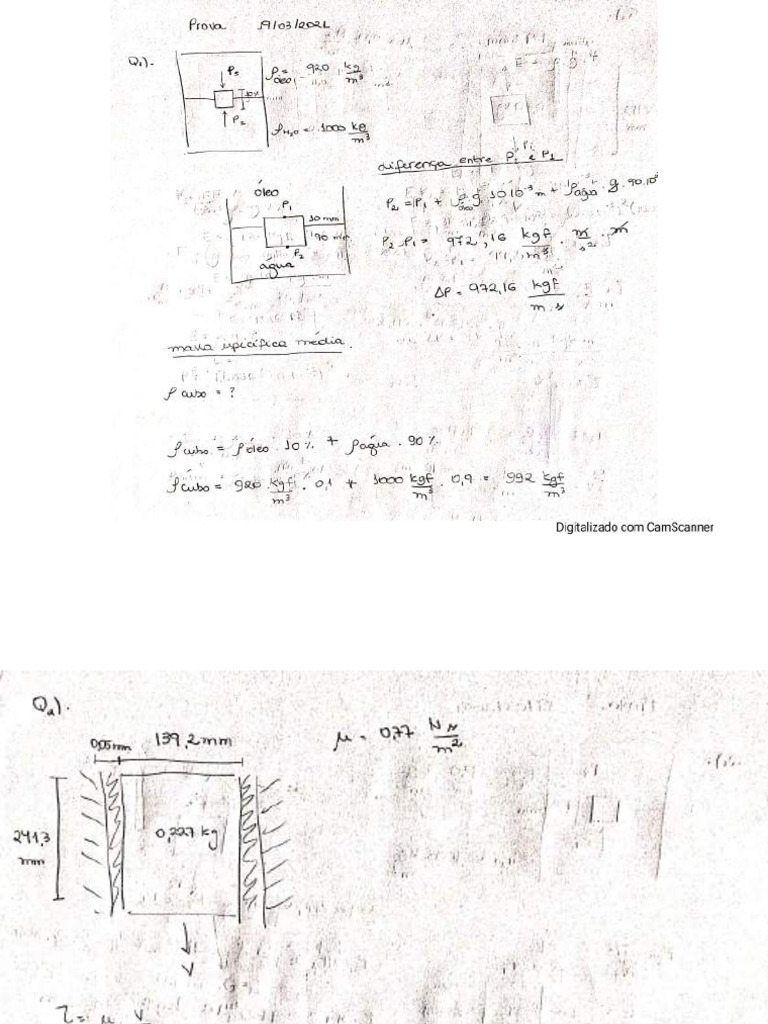 Prova 19/03/2021
Q1).
P1
10%
P2
ρóleo = 920 kg/m³
ρH2O = 1000 kg/m³
diferença entre P2 e P1
óleo
P1
10 mm
90 mm
P2
água
P2 = P1 + ρóleo g 10.10⁻³ m + ρágua . g . 90.10⁻³
P2-P1 = 972,16 kgf/m³ . m/s² . m
ΔP = 972,16 kgf/m.s
massa específica média.
ρcubo = ?
ρcubo = ρóleo . 10% + ρágua . 90%
ρcubo = 920 kgf/m³ . 0,1 + 1000 kgf/m³ . 0,9 = 992 kgf/m³
Digitalizado com CamScanner
Q2).
0,05mm 139,2mm
μ = 0,77 N s/m²
241,3 mm
0,227 kg
V
τ = μ V